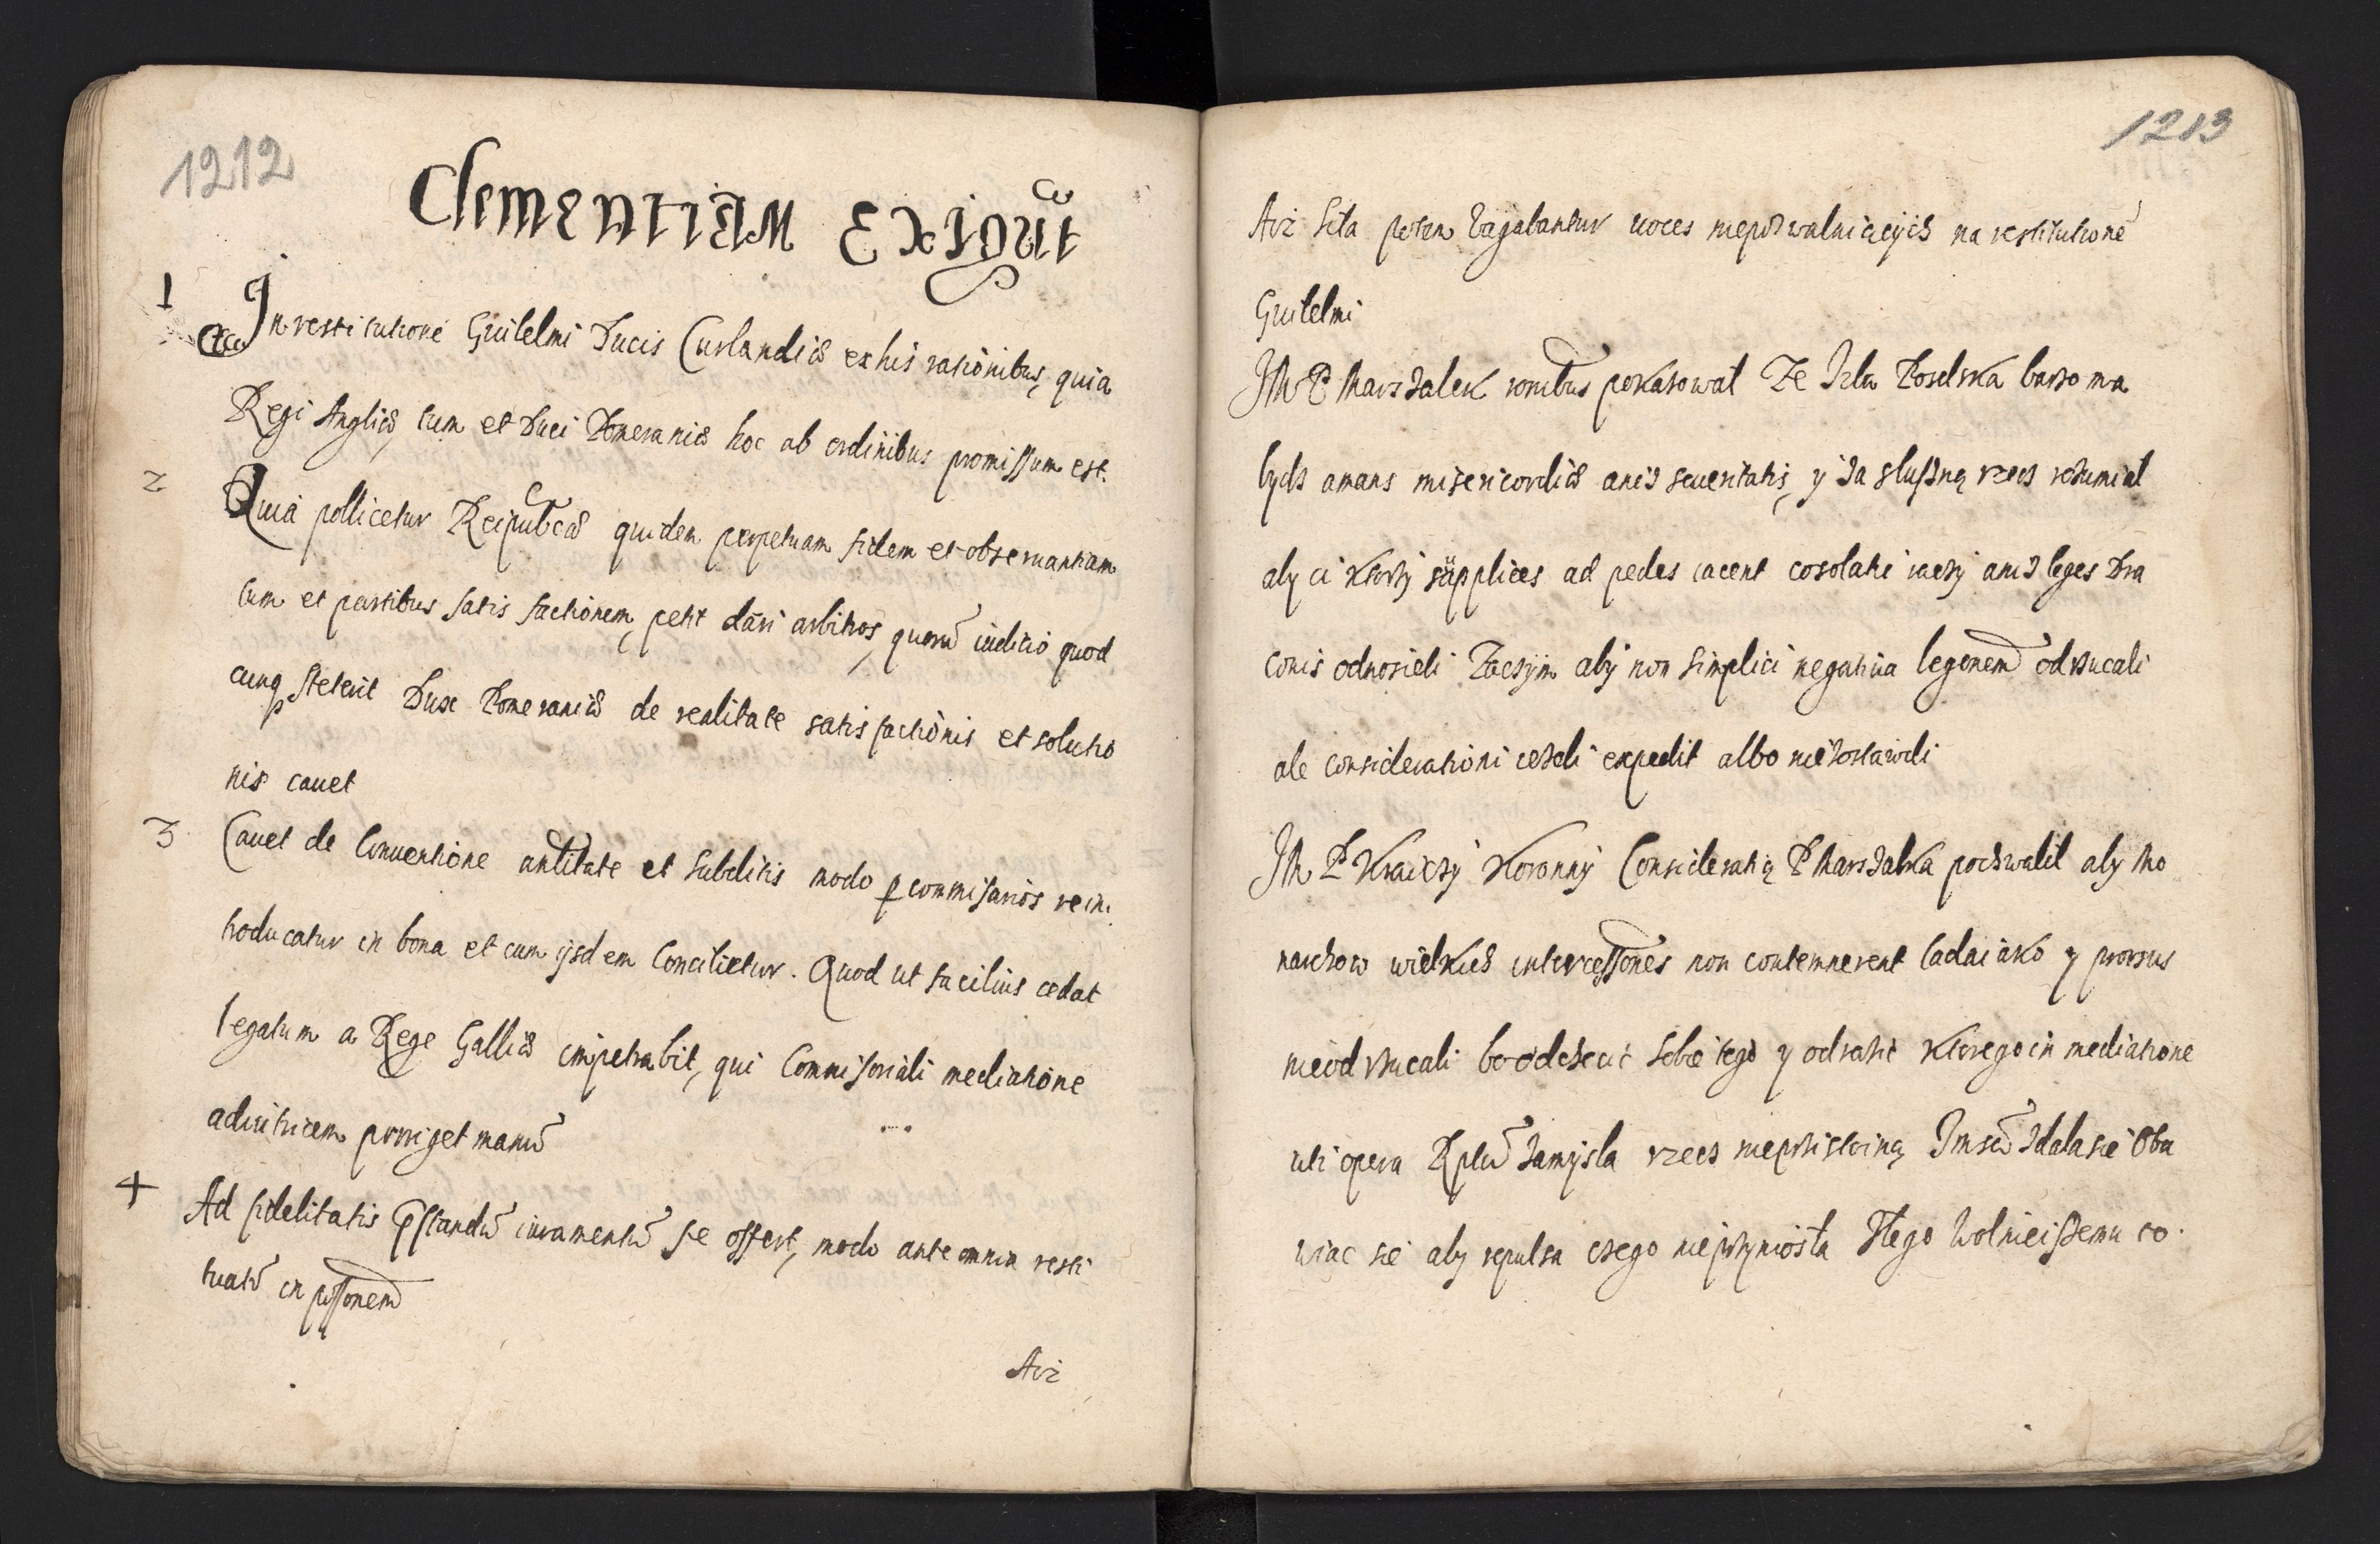 1212
Clementiam Exigũt
1 In restitutione Guilelmi Ducis Curlandiæ ex his rationibus, quia
Regi Angliæ, tum et Duci Pomeraniæ hoc ab ordinibus promissum est.
2 Quia pollicetur Reipubcæ quidem perpetuam fidem et observantiam
tum et partibus satis factionem, petit dari arbitros, quorũ iudicio quod
cunq steterit Dux Pomeraniæ de realitate satisfactionis et solutio
nis cauet
3 Cauet de Conuentione et subditis modo ꝑ commissarios rein
troducatur in bona et cum ijsdem Concilietur. Quod ut facilius cedat
legatum a Rege Galliæ impetrabit, qui Commissoriali mediatione
adiutricem porriget manũ
4 Ad fidelitatis pstandũ iuramentũ se offert, modo ante omnia resti
tuatũ in possonem
Aż
1213
Aż Sita potem vagabantur uoces niepozwalaiących na restitutionẽ
Guilelmi
JM P Marszałek pokazował Że Izba Poselska barzo ma
bydź amans misericordiæ aniż seueritatis, y za słuszną rzecz rozumiał
aby ci ktorzy supplices ad pedes iacent cosolatię raczy aniż leges Dra
conis odnosieli Zaczym aby non simplici negatiua legonem odrzucali
ale considerationi ieżeli expedit albo nie zostawili
JM P Kraiczy Koronny Consideratią P Marszałka pochwalił aby Mo
narchow wielkich intercessones non contemnerent ladaiako y prorsus
nieodrzucali bo odchecić sobie tego y odrazić ktorego in mediatione
uti opera Rptũ zamysla rzecz nieprzistoiną Insũ zdala sie Oba
wiac sie aby repulsa czego nieprzyniosła Złego Wolnieiszemu co